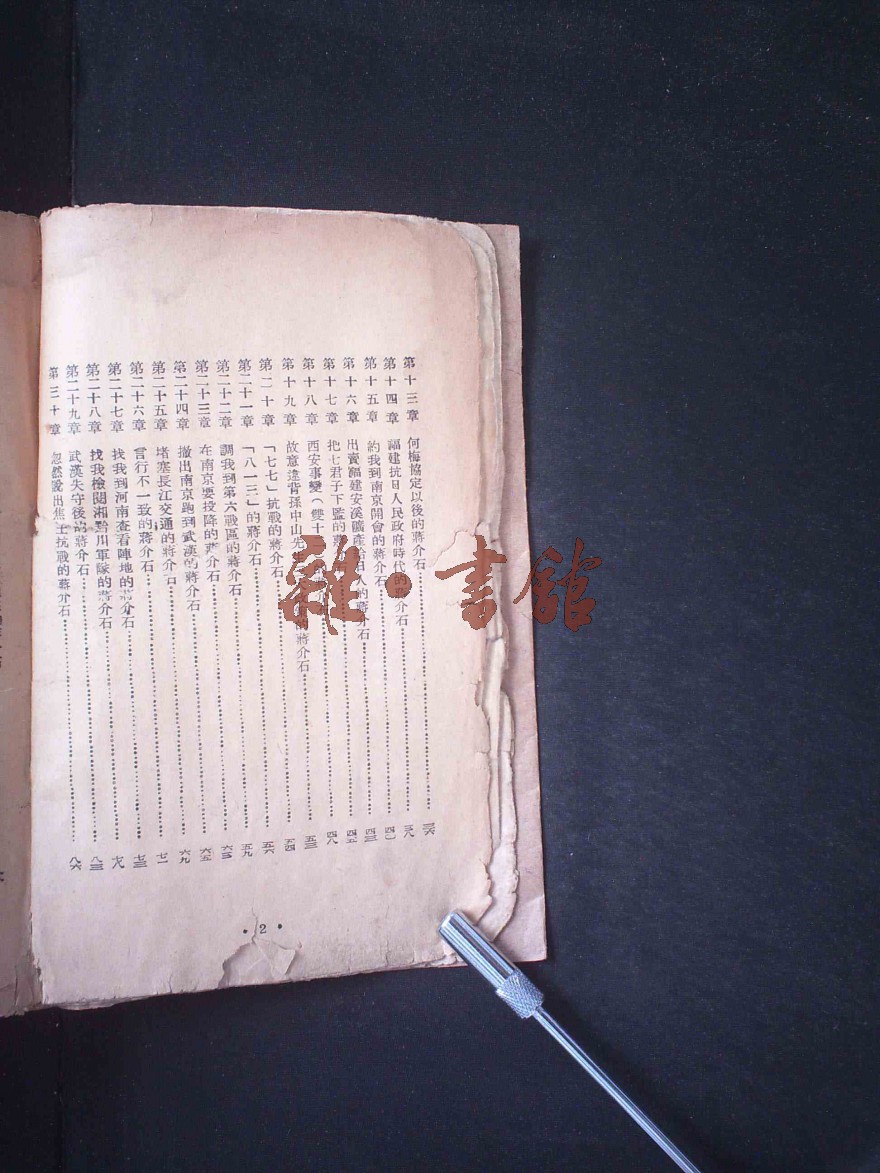 第十三章 何梅協定以後的蔣介石 三六
第十四章 福建抗日人民政府時代的蔣介石 三八
第十五章 約我到南京開會的蔣介石 四〇
第十六章 出賣福建安溪礦產給日人的蔣介石 四三
第十七章 把七君子下監的蔣介石 四五
第十八章 西安事變(雙十二 四八
第十九章 故意違背孫中山先生 的蔣介石 五三
第二十章 「七七」抗戰的蔣介石 五四
第二十一章 「八一三」的蔣介石 五六
第二十二章 調我到第六戰區的蔣介石 五九
第二十三章 在南京要投降的蔣介石 六三
第二十四章 撤出南京跑到武漢的蔣介石 六五
第二十五章 堵塞長江交通的蔣介石 六九
第二十六章 言行不一致的蔣介石 七一
第二十七章 找我到河南查看陣地的蔣介石 七三
第二十八章 找我檢閱湘黔川軍隊的蔣介石 七八
第二十九章 武漢失守後的蔣介石 八三
第三十章 忽然說出焦土抗戰的蔣介石 八六
• 2 •
雜·書館